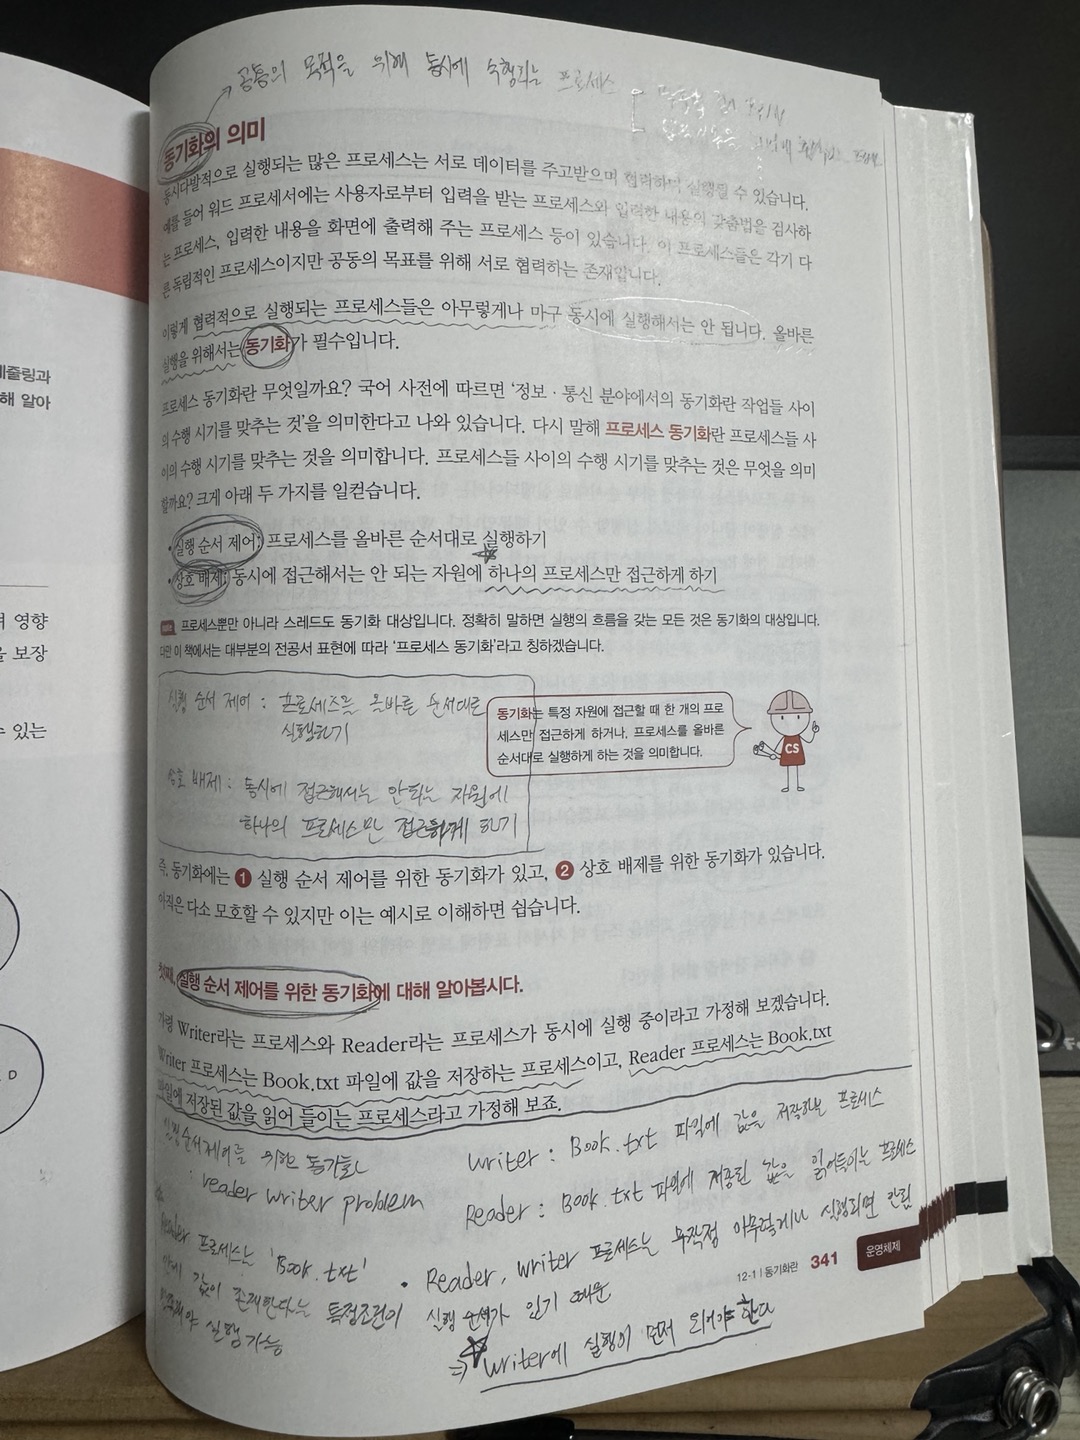 공통의 목적을 위해 동시에 수행되는 프로세스
동기화의 의미
동시다발적으로 실행되는 많은 프로세스는 서로 데이터를 주고받으며 협력하며 실행될 수 있습니다.
예를 들어 워드 프로세서에는 사용자로부터 입력을 받는 프로세스와 입력한 내용의 맞춤법을 검사하
는 프로세스, 입력한 내용을 화면에 출력해 주는 프로세스 등이 있습니다. 이 프로세스들은 각기 다
른 독립적인 프로세스이지만 공동의 목표를 위해 서로 협력하는 존재입니다.
이렇게 협력적으로 실행되는 프로세스들은 아무렇게나 마구 동시에 실행해서는 안 됩니다. 올바른
실행을 위해서는 동기화가 필수입니다.
프로세스 동기화란 무엇일까요? 국어 사전에 따르면 '정보·통신 분야에서의 동기화란 작업들 사이
의 수행 시기를 맞추는 것'을 의미한다고 나와 있습니다. 다시 말해 프로세스 동기화란 프로세스들 사
이의 수행 시기를 맞추는 것을 의미합니다. 프로세스들 사이의 수행 시기를 맞추는 것은 무엇을 의미
할까요? 크게 아래 두 가지를 일컫습니다.
• 실행 순서 제어: 프로세스를 올바른 순서대로 실행하기
• 상호 배제: 동시에 접근해서는 안 되는 자원에 하나의 프로세스만 접근하게 하기
note 프로세스뿐만 아니라 스레드도 동기화 대상입니다. 정확히 말하면 실행의 흐름을 갖는 모든 것은 동기화의 대상입니다.
다만 이 책에서는 대부분의 전공서 표현에 따라 '프로세스 동기화'라고 칭하겠습니다.
실행 순서 제어 : 프로세스를 올바른 순서대로
실행하기
상호 배제 : 동시에 접근해서는 안되는 자원에
하나의 프로세스만 접근하게 하기
동기화는 특정 자원에 접근할 때 한 개의 프로
세스만 접근하게 하거나, 프로세스를 올바른
순서대로 실행하게 하는 것을 의미합니다.
CS
즉, 동기화에는 1 실행 순서 제어를 위한 동기화가 있고, 2 상호 배제를 위한 동기화가 있습니다.
아직은 다소 모호할 수 있지만 이는 예시로 이해하면 쉽습니다.
첫째, 실행 순서 제어를 위한 동기화에 대해 알아봅시다.
가령 Writer라는 프로세스와 Reader라는 프로세스가 동시에 실행 중이라고 가정해 보겠습니다.
Writer 프로세스는 Book.txt 파일에 값을 저장하는 프로세스이고, Reader 프로세스는 Book.txt
파일에 저장된 값을 읽어 들이는 프로세스라고 가정해 보죠.
실행순서제어를 위한 동기화
: reader writer problem
Reader 프로세스는 'Book.txt'
안에 값이 존재한다는 특정조건이
실행 가능
Writer : Book.txt 파일에 값을 저장하는 프로세스
Reader : Book.txt 파일에 저장된 값을 읽어들이는 프로세스
• Reader, Writer 프로세스는 무작정 아무렇게나 실행되면 안됨
실행 순서가 있기 때문
⇒ Writer에 실행이 먼저 되어야 한다
12-1 | 동기화란 341
운영체제
레줄링과
해 알아
영향
보장
있는
D